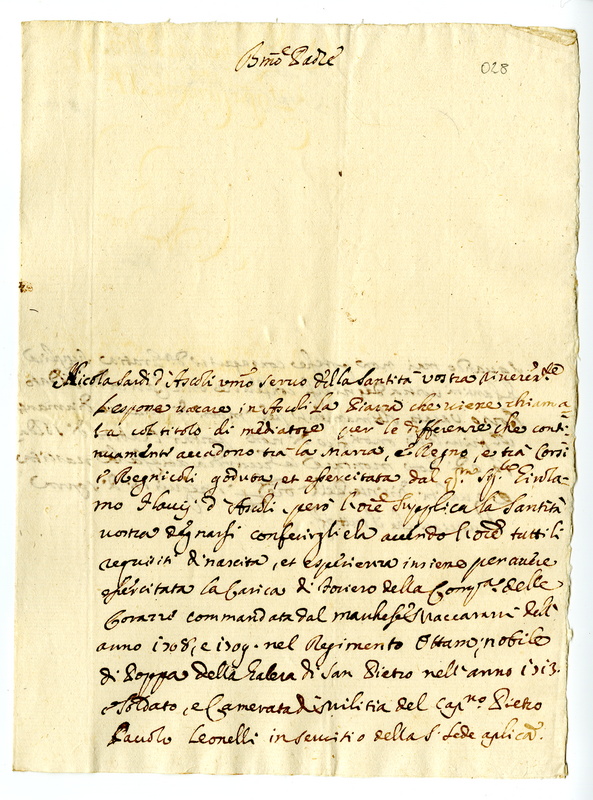 Bmo͂ Padre
028
Nicola Sardi d'Ascoli vmo͂ servo della Santità vostra riveren.te
l'espone vacare in Ascoli la Piazza che viene chiama
ta col titolo di mediatore per le differenze che conti
nuamente accadono trà la Marca, e Regno, e trà Corsi
e Regnicoli goduta, et essercitata dal qm͂ Sig.re Girola
mo d'Ascoli però l'ore͂ supplica la Santità
vostra degnarsi conferirgliela avendo l'ore͂ tutti li
requisiti di nascita, et esperienza insieme per avere
essercitata la Carica di foriero della Compa. delle
Corazze commandata dal marchese Vaccarani dell'
anno 1708, e 1709. nel Regimento nobile
di Poppa della Galera di San Pietro nell'anno 1713.
e Soldato, e Camerata di Militia del Capno. Pietro
Pauolo Leonelli in servitio della S. Sede aplica͂.